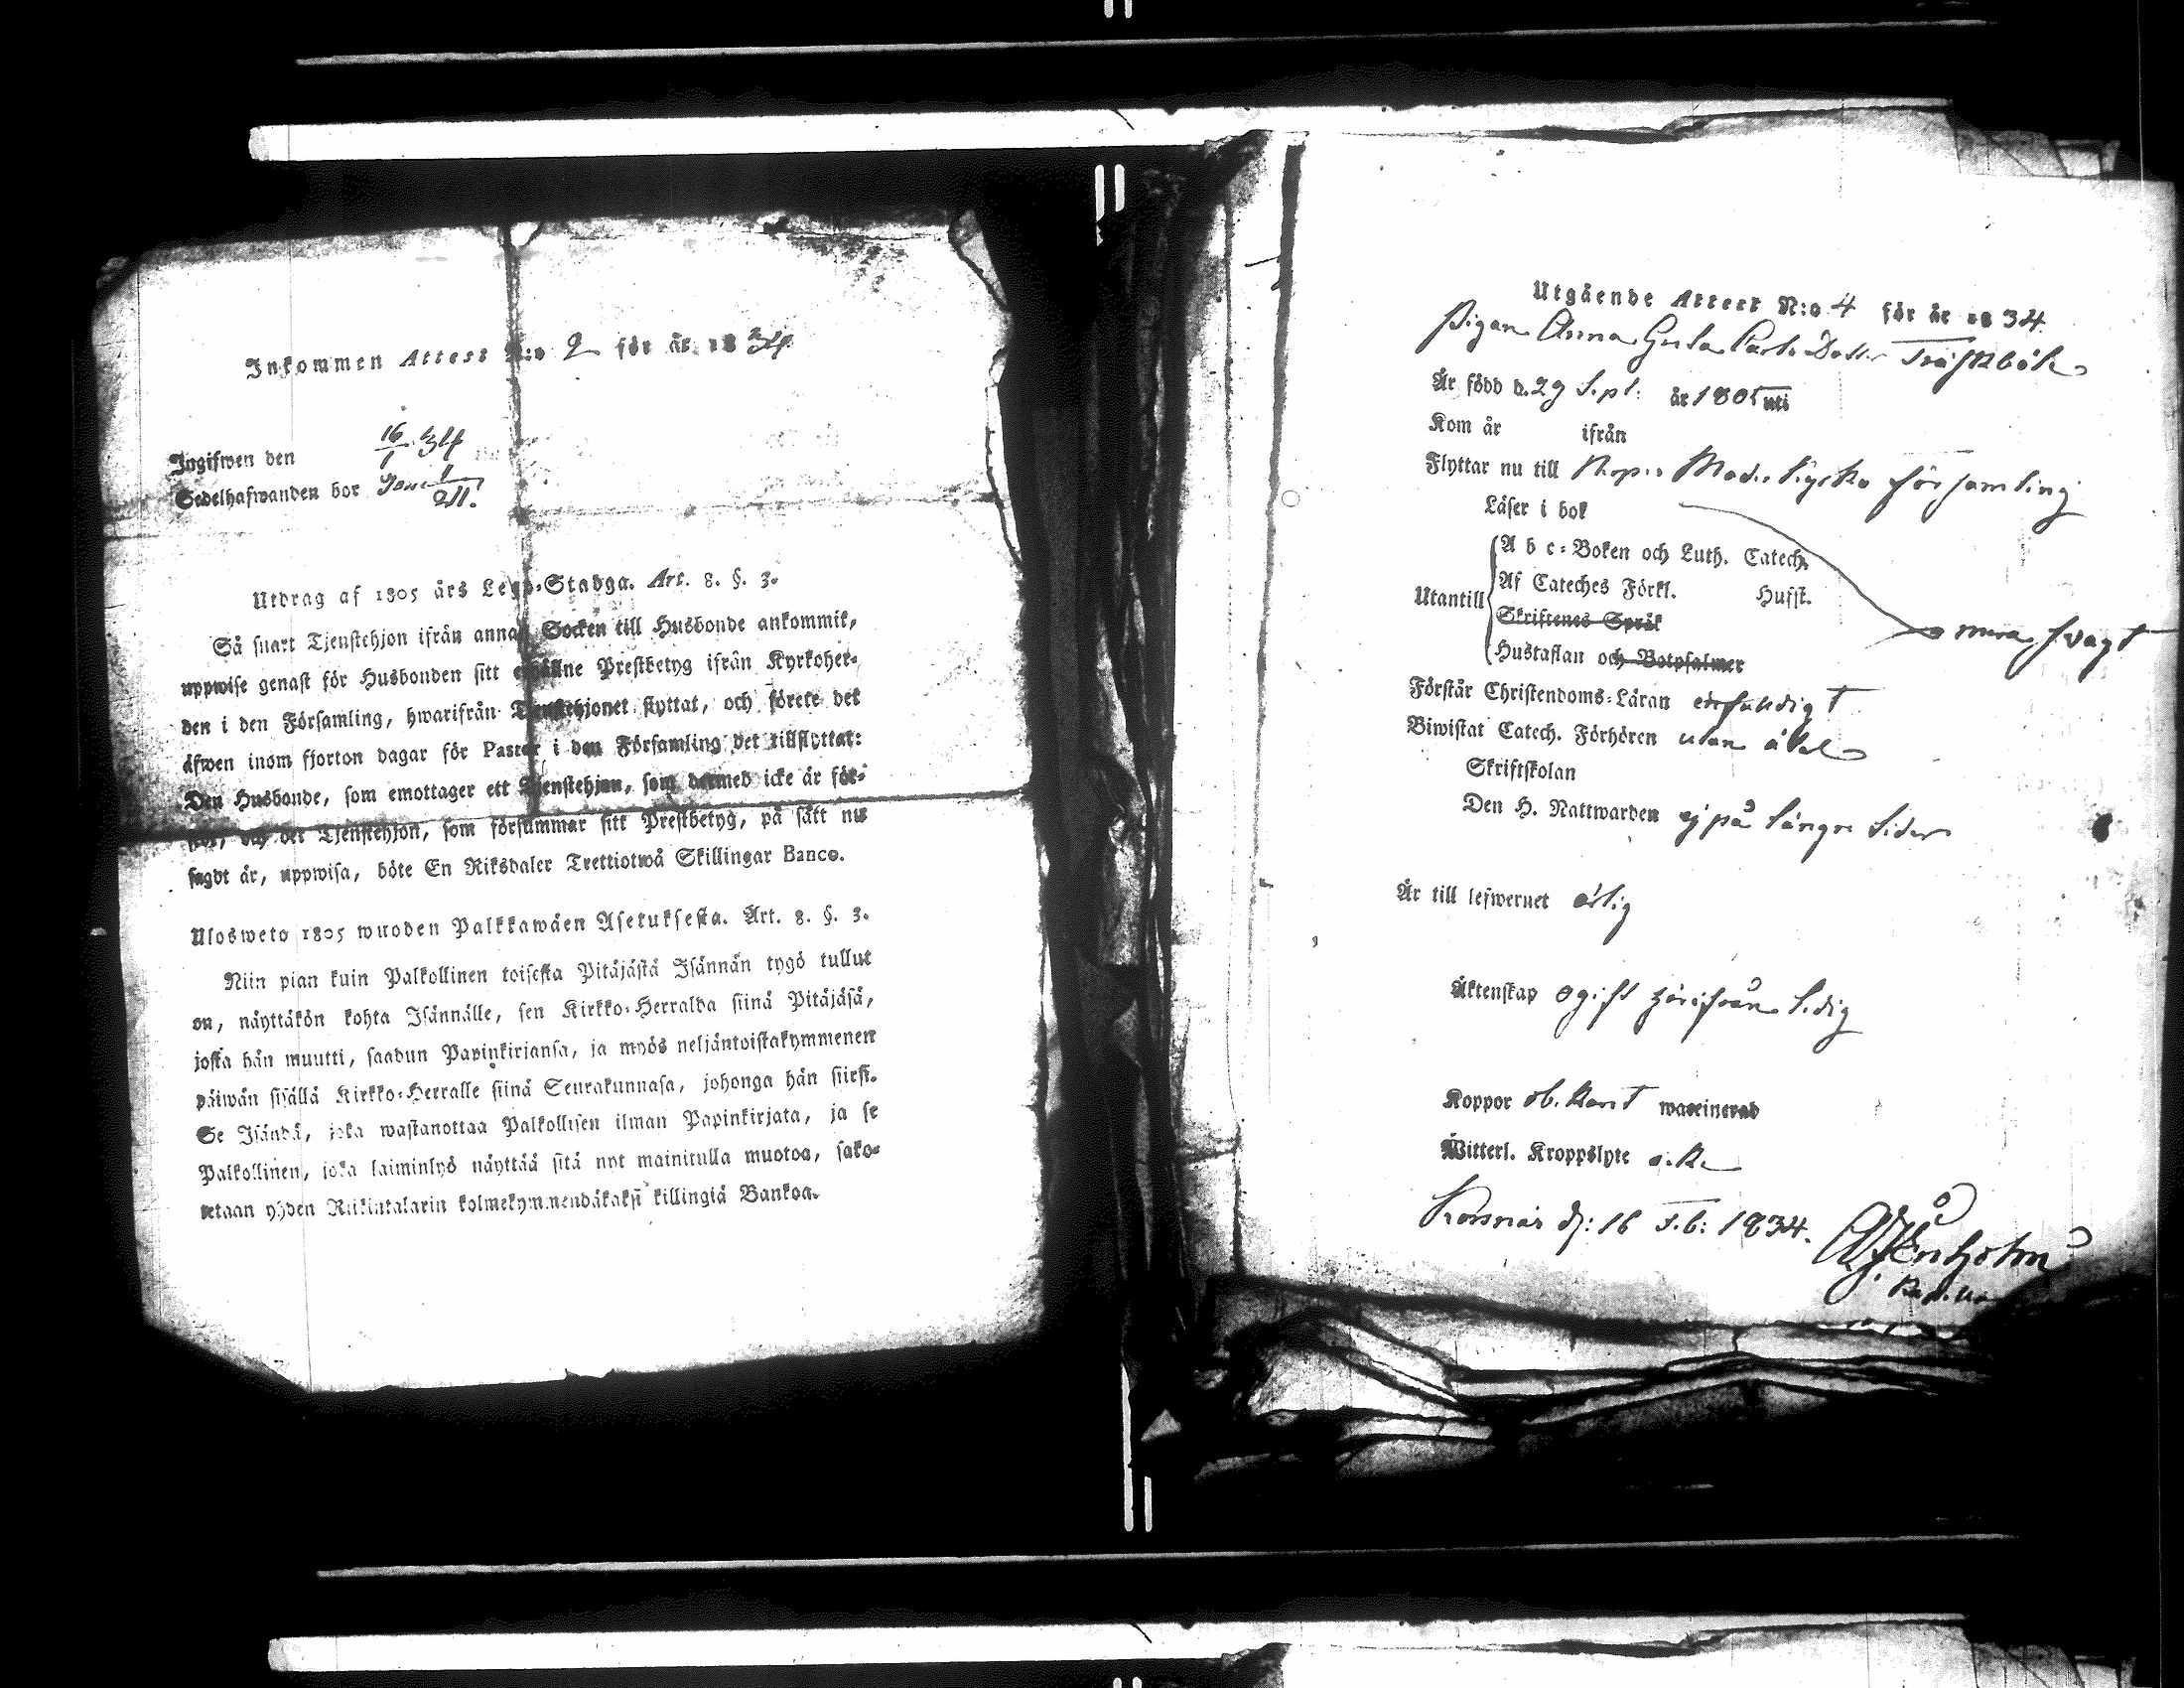 Inkommen Attest N:o 2 för år 1834
Ingifwen den 16/1 34
Sedelhafwanden bor
Utdrag af 1805 års Lego-Stadga. Art. 8. §. 3.
Så snart Tjenstehjon ifrån annan Socken till Husbonde ankommit,
uppwise genast för Husbonden sitt erhållne Prestbetyg ifrån Kyrkoher-
den i den Församling, hwarifrån Tjenstehjonet flyttat, och förete det
äfwen inom fjorton dagar för Pastor i den Församling det tillflyttat:
Den Husbonde, som emottager ett Tjenstehjon, som dermed icke är för-
sedt, och det Tjenstehjon, som försummar sitt Prestbetyg, på sätt nu
sagdt är, uppwisa, böte En Riksdaler Trettiotwå Skillingar Banco.
Ulosweto 1805 wuoden Palkkawäen Asetuksesta. Art. 8. §. 3.
Niin pian kuin Palkollinen toisesta Pitäjästä Isännän tygö tullut
on, näyttäkön kohta Isännälle, sen Kirkko-Herralda siinä Pitäjäsä,
josta hän muutti, saadun Papinkirjansa, ja myös neljäntoistakymmenen
päiwän sisällä Kirkko-Herralle siinä Seurakunnasa, johonga hän siirsi.
Se Isändä, joka wastanottaa Palkollisen ilman Papinkirjata, ja se
Palkollinen, joka laiminlyö näyttää sitä nyt mainitulla muotoa, sako-
tetaan yhden Riikintalarin kolmekymmendäkaksi killingiä Bankoa.
Utgående Attest N:o 4 för år 1834
Pigan Anna Gusta Carls Dotter Träskböle
Är född d. 29 Sept: år 1805 uti
Kom år ifrån
Flyttar nu till församling
Läser i bok
A b c-Boken och Luth. Catech.
Af Cateches Förkl. Husst.
Utantill
Skriftenes Språk
Hustaflan och Botpsalmer
svagt
Förstår Christendoms-Läran enfaldigt
Biwistat Catech. Förhören utan åtal
Skriftskolan
Den H. Nattwarden ej på längre tider
Är till lefwernet ärlig
Äktenskap ogift härifrån ledig
Koppor obekant waccinerad
Witterl. Kroppslyte
Korsnäs d: 16 Feb: 1834.